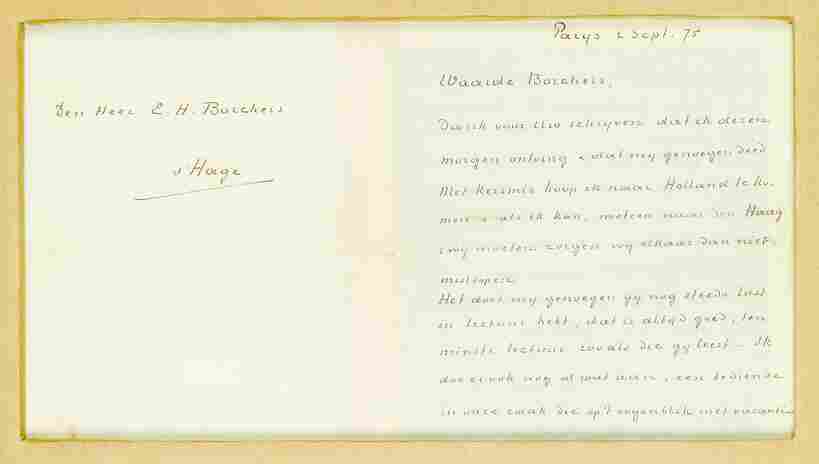 Den Heer E. H. Borchers
s Hage
Parys 2 Sept. 75
Waarde Borchers,
Dank voor Uw schrijven dat ik dezen
morgen ontving & dat my genoegen deed
Met Kersmis hoop ik naar Holland te ko-
men & als ik kan, meteen naar den Haag
& wy moeten zorgen wy elkaar dan niet
mislopen.
Het doet my genoegen gy nog steeds lust
in lectuur hebt, dat is altyd goed, ten
minste lectuur zooals die gy leest – Ik
doe er ook nog al wat aan, een bediende
in onze zaak die op't oogenblik met vacantie